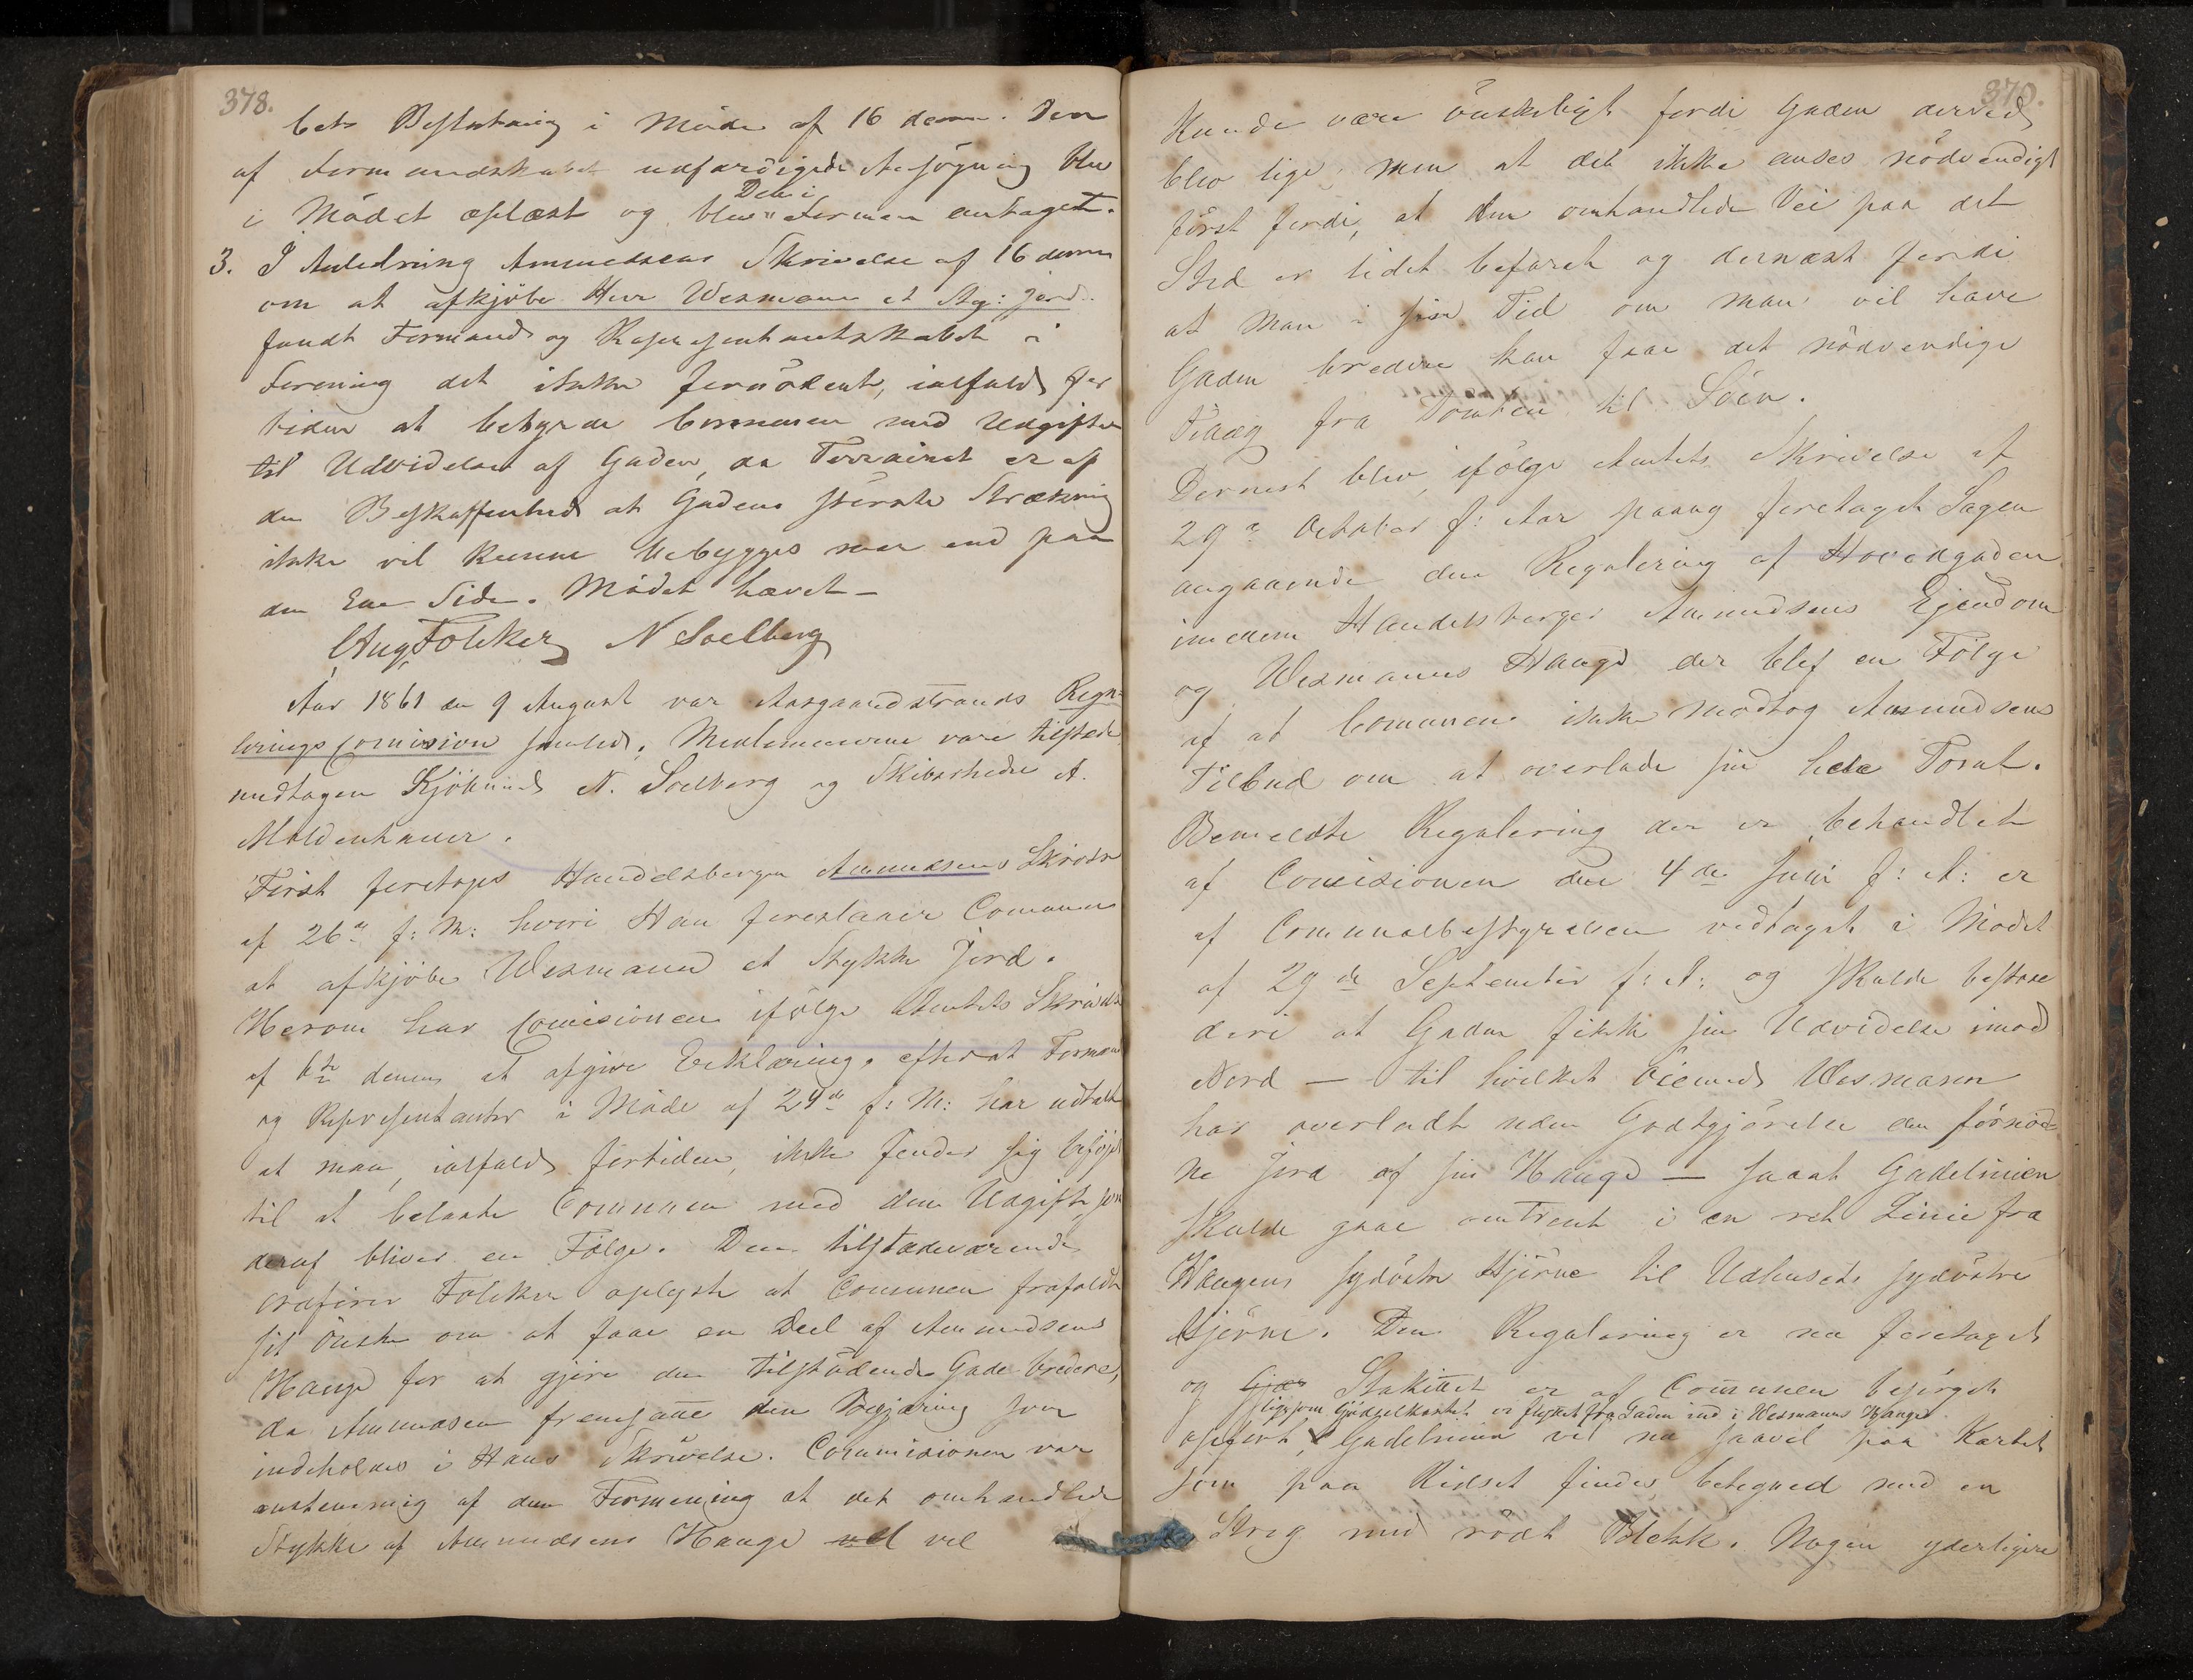 378.
bets Beslutning i Møde af 16 dennes. Den
af Formandskabet udfærdigede Ansøgning blev
i Mødet oplæst og blev den i Formen antaget.
3. I Anledning Amundsens Skrivelse af 16 dennes
om at afkjøbe Herr Wesmann et Stg: Jord
fandt Formand og Representantskabet i
Forening det ikke fornødent, ialfald for
tiden at betynge Communen med Udgifter
til Udvidelse af Gaden, da Terrainet er af
den Beskaffenhed at Gadens største Strækning
ikke vil kunne bebygges mer end paa
den Ene Side. Mødet hævet –
Aug Føleker N Soelberg
Aar 1861 den 9 August var Aasgaardstrands Regu-
lerings Comission samlet. Medlemmerne vare tilstede
undtagen Kjøbmand N. Soelberg og Skibsrheder A.
Moldenhauer.
Først foretoges Handelsborger Amundsens Skrivelse
af 26de f: M: hvori Han foreslaaer Communen
at afkjøbe Wesmann et Stykke Jord.
Herom har Comisionen ifølge Amtets Skrivelse
af 6te dennes at afgive Erklæring, efterat Formænd
og Representanter i Møde af 29de f: M: har udtalt
at man, ialfald fortiden, ikke finder sig beføjet
til at belaste Communen med den Udgift som
deraf bliver en Følge. Den tilstedeværende
Ordfører Føleker oplyste at Communen frafaldt
sit Ønske om at faae en Deel af Amundsens
Hauge for at gjøre den tilstødende Gade bredere,
da Amundsen fremsatte den Begjæring som
indeholdes i Hans Skrivelse. Commisionen var
enstemmig af den Formening at det omhandlede
Stykke af Amundsens Hauge vel vel
379.
Kunde være ønskeligt fordi Gaden derved
blev lige, men at det ikke ansees nødvendigt
først fordi, at den omhandlede Vei paa det
Sted er lidet befaret og dernæst fordi
at man i sin Tid om man vil have
Gaden bredere kan faae det nødvendige
Tillæg fra Tomten til Søen.
Dernest blev, ifølge Amtets Skrivelse af
29de October f: Aar paany foretaget Sagen
angaaende den Regulering af Hovedgaden
imellem Handelsborger Amundsens Ejendom
og Wesmanns Hauge der blef en Følge
af at Communen ikke modtog Amundsens
Tilbud om at overlade sin hele Tomt.
Bemeldte Regulering der er behandlet
af Comisionen den 4de Juni f: A: er
af Communalbestyrelsen vedtaget i Mødet
af 29de September f: A: og skulde bestaae
deri at Gaden fikk sin Udvidelse imod
Nord – til hvilket Øiemed Wesmann
har overladt uden Godtgjørelse den fornød-
ne Jord af sin Hauge – saaat Gadelinien
skulde gaae omtrent i en ret Linie fra
Haugens sydøstre Hjørne til Udhusets sydøstre
Hjørne. Den Regulering er nu foretaget
og Gjær Stakittet er af Communen besørget
ligesom Gjødselkastet er flyttet fra Gaden ind i Wesmanns Hauge.
opført, Gadelinien vil nu saavel paa Kartet
som paa Ridset findes betegned med en
Streg med rødt Blekk. Nogen yderligere